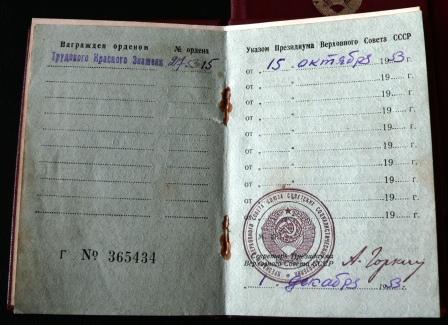 Награжден орденом № ордена
Трудового Красного Знамени
Г № 365434
Указом Президиума Верховного Совета СССР
от „ 15 „ октября 1953 г.
от „ „ 19 г.
от „ „ 19 г.
от „ „ 19 г.
от „ „ 19 г.
от „ „ 19 г.
от „ „ 19 г.
от „ „ 19 г.
от „ „ 19
Секретарь Президиума
Верховного Совета СССР А. Горкин
1 декабря 1953 г.